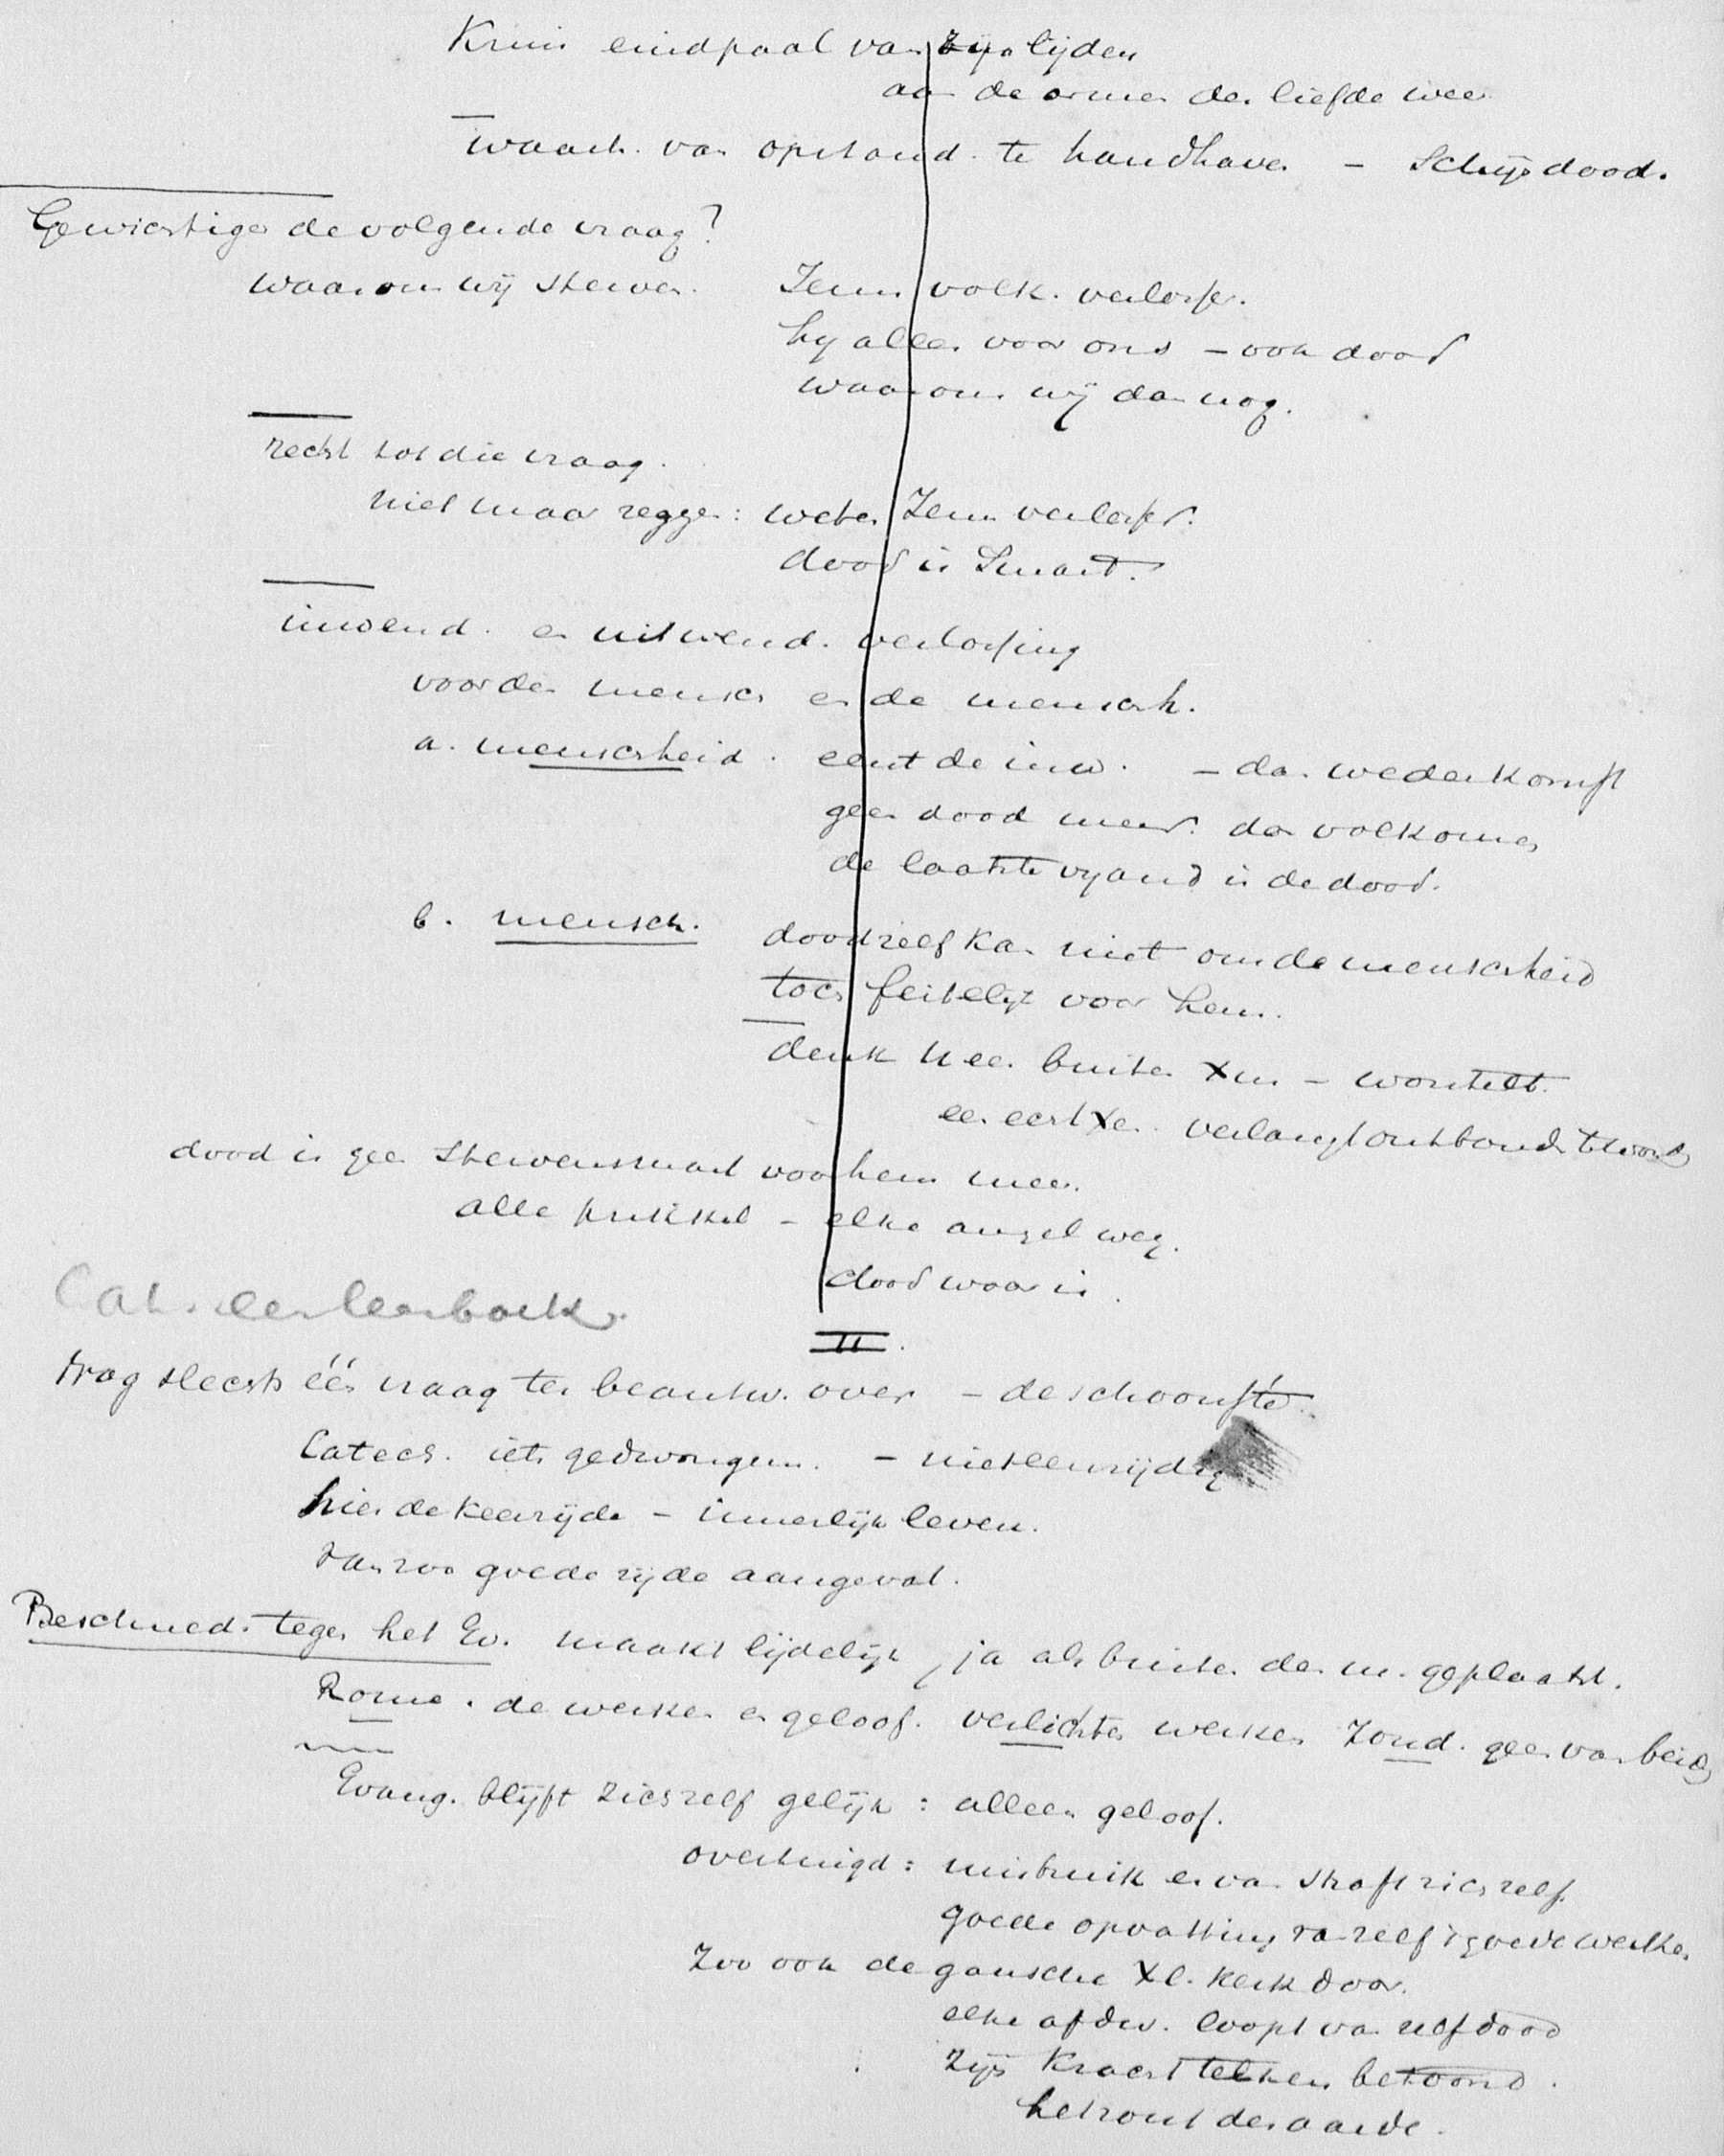 Kruis eindpaal van zijn lijden
aan de armen der liefde weer
waarh. van opstand. te handhaven – Schijndood.
Gewichtiger de volgende vraag?
waarom wij sterven. Jezus volk. verlosser.
hij alles voor ons – ook dood
waarom wij dan nog.
recht tot die vraag.
niet maar zeggen: weten Jezus verlosser.
dood is Smart.
inwend. en uitwend. verlossing
voor den mensch en de mensch.
a. menschheid. eerst de inw. – dan wederkomst
geen dood meer. dan volkomen
de laatste vyand is de dood.
b. mensch. dood zelf kan niet om de menschheid
toch feitelijk voor hem.
denk U een buiten Xus – worstelt.
een echt Xen. verlangt ontbonden te word
dood is geen stervenssmart voor hem meer.
alle prikkel – elke angel weg.
dood waar is.
Cat. een leerboek.
II.
Nog slechts één vraag ter beantw. over – de schoonste.
Catech. iets gedwongens. – niet eenzijdig
hier de keerzijde – innerlijk leven.
van zoo goede zijde aangevat.
Beschuld. tegen het Ev. maakt lijdelijk, ja als buiten den m. geplaatst.
Rome. de werken en geloof. verlichten werken Zond. geen van beide
Evang. blijft zichzelf gelijk: alleen geloof.
overtuigd: misbruik er van straft zichzelf.
goede opvatting van zelf goede werken
Zoo ook de gansche Xel. kerk door.
elke afdw. loopt van zelf dood
zijn Kracht telkens betoond.
het zout der aarde.